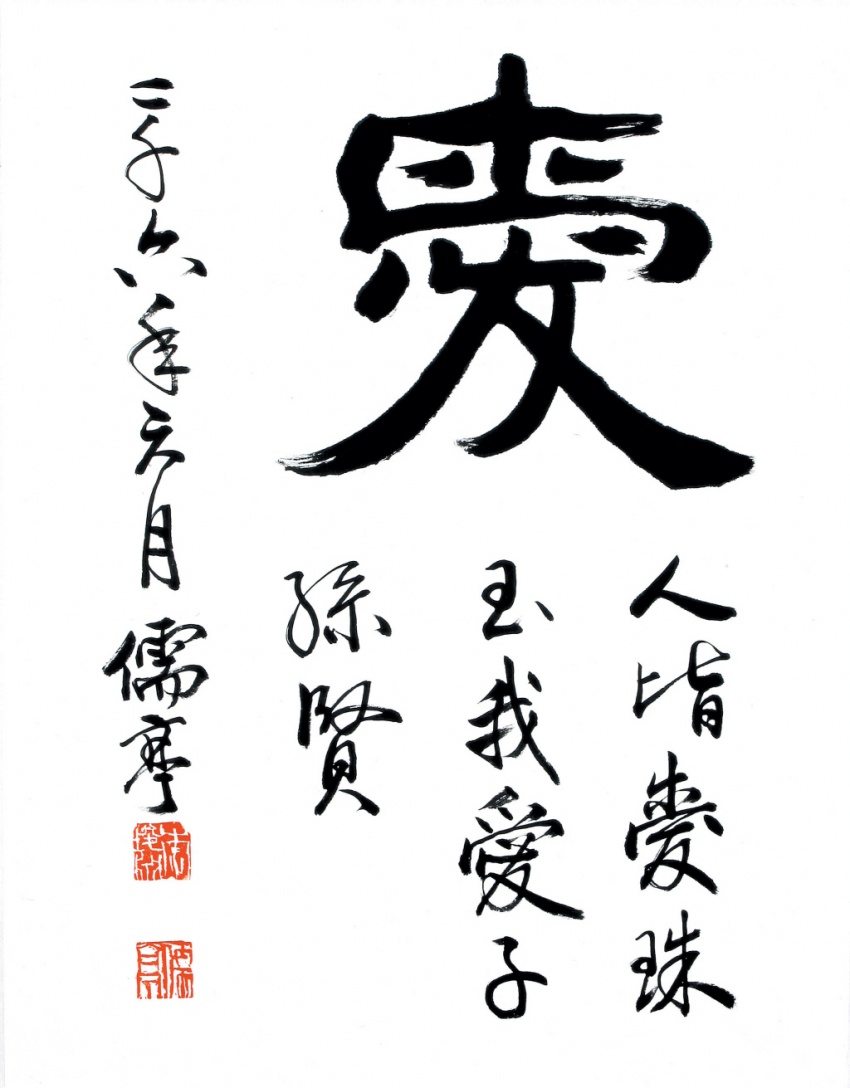 愛
人皆愛珠
玉我愛子
孫賢
二千六年六月 儒亭